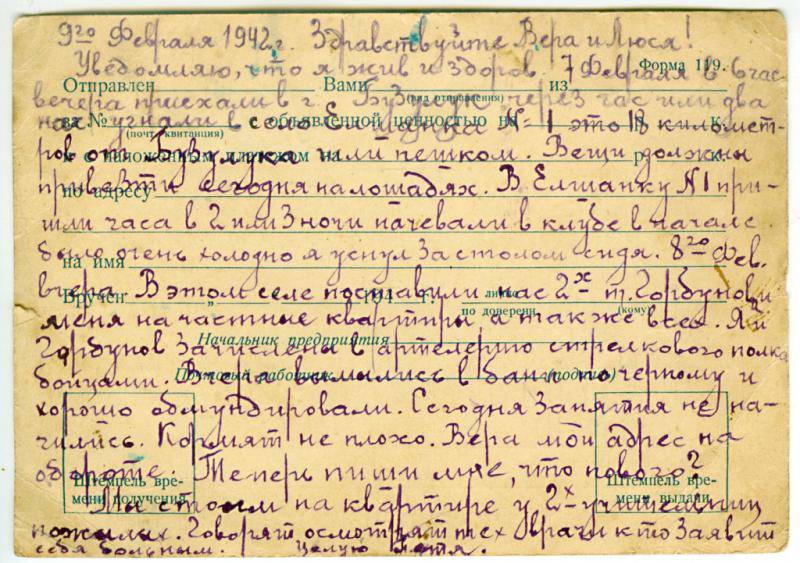 9го Февраля 1942г. Здравствуйте Вера и Люся!
Уведомляю, что я жив и здоров 7 Февраля в 6 час.
Форма 119.
Отправлен Вами из
(род отправления)
вечера приехали в г. Бузулук через час или два
за № с объявленной ценностью на р. к.
(почт. квитанция)
нас угнали в село Елшанка N=1 это 18 километ-
с наложенным платежом на р. к.
ров от Бузулука шли пешком. Вещи должны
по адресу
привезти сегодня на лошадях. В Елшанку N1 при-
шли часа в 2 или 3 ночи начевали в клубе в начале
было очень холодно я уснул за столом сидя. 8го Фев.
на имя
Вручен 194 г. лично
по доверен. (кому)
вчера В этом селе поставили нас 2х т. Горбунов и
меня на частные квартиры а также всех. Я и
Начальник предприятия
Горбунов зачислены в артелерию стрелкового полка
Почтовый работник (подпись)
бойцами. Вчера вымылись в бани по черному и
хорошо обмундировали. Сегодня занятия не на-
чились. Кормят не плохо. Вера мой адрес на
обороте. Теперь пиши мне, что нового?
Штемпель вре-
мени получения
Штемпель вре-
мени выдачи
Мы стоим на квартире у 2х учительниц
пожилых. Говорят осмотрят тех врачи кто заявит
себя больным. Целую Петя.